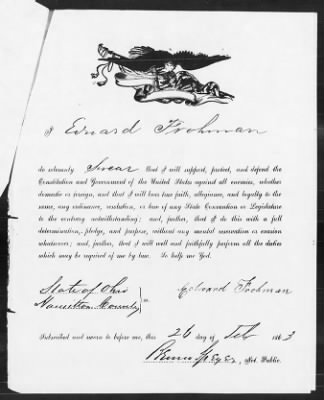 I Edward Frohman
do solemnly Swear that I will support, protect, and defend the
Constitution and Government of the United States against all enemies, whether
domestic or foreign, and that I will bear true faith, allegiance, and loyalty to
the same, any ordinance, resolution, or law of any State Convention or Legislature
to the contrary notwithstanding; and, further, that I do this with a full
determination, pledge, and purpose, without any mental reservation or evasion
whatsoever; and, further, that I will well and faithfully perform all the duties
which may be required of me by law. So help me God.
State of Ohio
Hamilton County } ss
Edward Frohman
Subscribed and sworn to before me, this 26 day of Feb 1863
Not. Public.